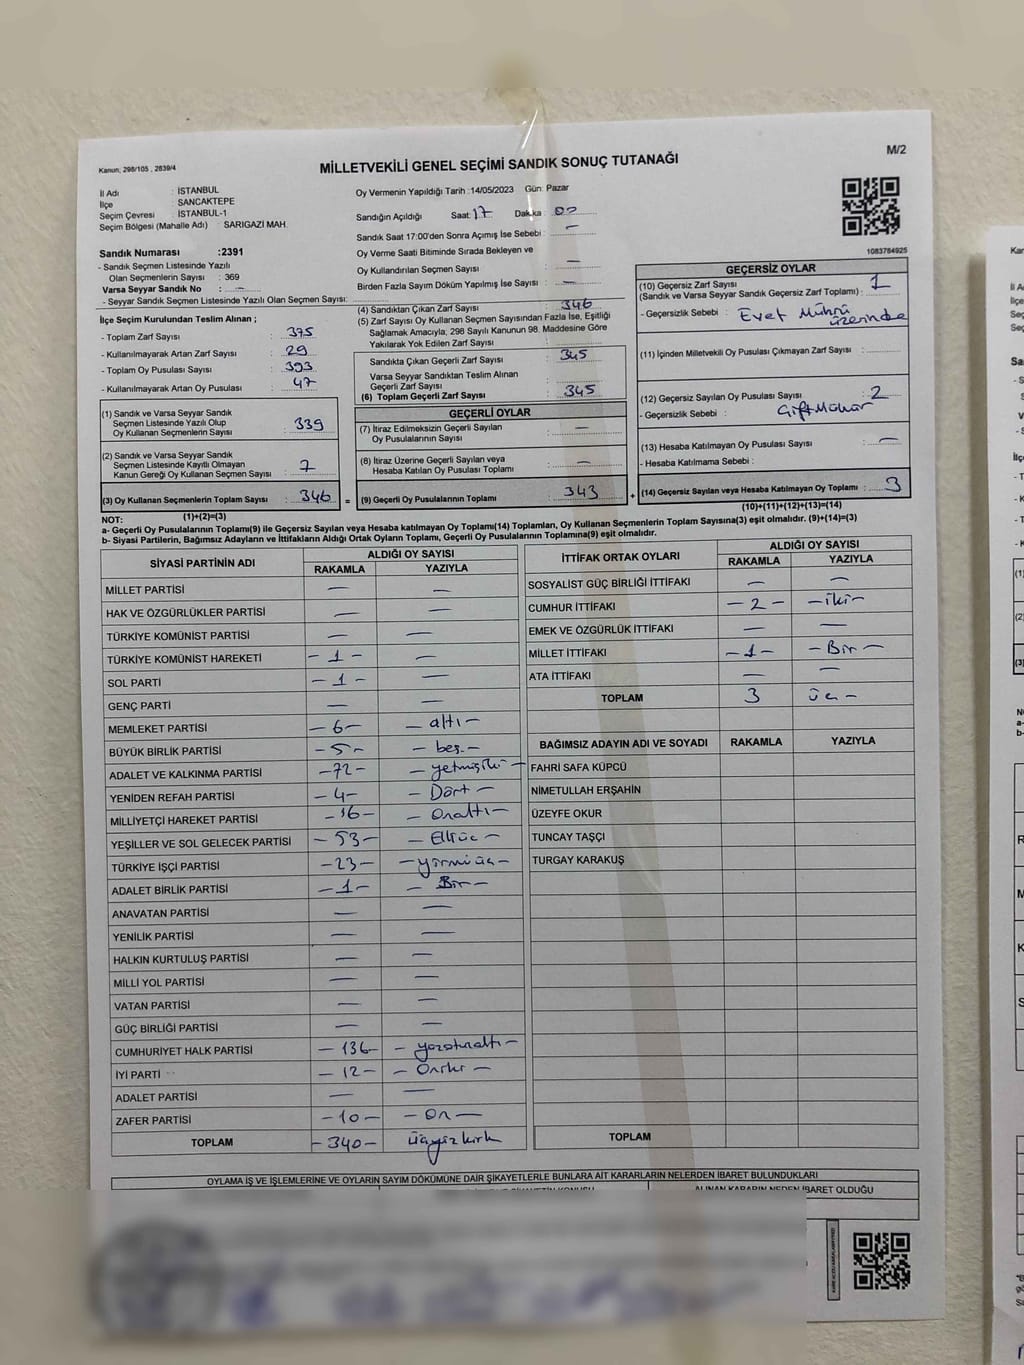 Kanun; 298/105 , 2839/4
M/2
MİLLETVEKİLİ GENEL SEÇİMİ SANDIK SONUÇ TUTANAĞI
İl Adı : İSTANBUL
İlçe : SANCAKTEPE
Seçim Çevresi : İSTANBUL-1
Seçim Bölgesi (Mahalle Adı) : SARIGAZİ MAH.
Sandık Numarası :2391
- Sandık Seçmen Listesinde Yazılı
Olan Seçmenlerin Sayısı : 369
Varsa Seyyar Sandık No : —
- Seyyar Sandık Seçmen Listesinde Yazılı Olan Seçmen Sayısı:
Oy Vermenin Yapıldığı Tarih :14/05/2023 Gün: Pazar
Sandığın Açıldığı Saat: 17 Dakika : 00
Sandık Saat 17:00'den Sonra Açımış İse Sebebi : —
Oy Verme Saati Bitiminde Sırada Bekleyen ve
Oy Kullandırılan Seçmen Sayısı : —
Birden Fazla Sayım Döküm Yapılmış İse Sayısı : —
1083764925
İlçe Seçim Kurulundan Teslim Alınan ;
- Toplam Zarf Sayısı : 375
- Kullanılmayarak Artan Zarf Sayısı : 29
- Toplam Oy Pusulası Sayısı : 393
- Kullanılmayarak Artan Oy Pusulası : 47
(1) Sandık ve Varsa Seyyar Sandık
Seçmen Listesinde Yazılı Olup
Oy Kullanan Seçmenlerin Sayısı : 339
(2) Sandık ve Varsa Seyyar Sandık
Seçmen Listesinde Kayıtlı Olmayan
Kanun Gereği Oy Kullanan Seçmen Sayısı : 7
(3) Oy Kullanan Seçmenlerin Toplam Sayısı : 346 =
(1)+(2)=(3)
(4) Sandıktan Çıkan Zarf Sayısı : 346
(5) Zarf Sayısı Oy Kullanan Seçmen Sayısından Fazla İse, Eşitliği
Sağlamak Amacıyla; 298 Sayılı Kanunun 98. Maddesine Göre
Yakılarak Yok Edilen Zarf Sayısı :
Sandıkta Çıkan Geçerli Zarf Sayısı : 345
Varsa Seyyar Sandıktan Teslim Alınan
Geçerli Zarf Sayısı :
(6) Toplam Geçerli Zarf Sayısı : 345
GEÇERLİ OYLAR
(7) İtiraz Edilmeksizin Geçerli Sayılan
Oy Pusulalarının Sayısı : —
(8) İtiraz Üzerine Geçerli Sayılan veya
Hesaba Katılan Oy Pusulası Toplamı : —
(9) Geçerli Oy Pusulalarının Toplamı : 343 +
GEÇERSİZ OYLAR
(10) Geçersiz Zarf Sayısı
(Sandık ve Varsa Seyyar Sandık Geçersiz Zarf Toplamı) : 1
- Geçersizlik Sebebi : Evet Mührü üzerinde
(11) İçinden Milletvekili Oy Pusulası Çıkmayan Zarf Sayısı :
(12) Geçersiz Sayılan Oy Pusulası Sayısı : 2
- Geçersizlik Sebebi : Çift Mühür
(13) Hesaba Katılmayan Oy Pusulası Sayısı : —
- Hesaba Katılmama Sebebi :
(14) Geçersiz Sayılan veya Hesaba Katılmayan Oy Toplamı : 3
(10)+(11)+(12)+(13)=(14)
NOT:
a- Geçerli Oy Pusulalarının Toplamı(9) ile Geçersiz Sayılan veya Hesaba katılmayan Oy Toplamı(14) Toplamları, Oy Kullanan Seçmenlerin Toplam Sayısına(3) eşit olmalıdır. (9)+(14)=(3)
b- Siyasi Partilerin, Bağımsız Adayların ve İttifakların Aldığı Ortak Oyların Toplamı, Geçerli Oy Pusulalarının Toplamına(9) eşit olmalıdır.
SİYASİ PARTİNİN ADI ALDIĞI OY SAYISI
RAKAMLA YAZIYLA
MİLLET PARTİSİ — —
HAK VE ÖZGÜRLÜKLER PARTİSİ — —
TÜRKİYE KOMÜNİST PARTİSİ — —
TÜRKİYE KOMÜNİST HAREKETİ - 1 - —
SOL PARTİ - 1 - —
GENÇ PARTİ — —
MEMLEKET PARTİSİ - 6 - - altı -
BÜYÜK BİRLİK PARTİSİ - 5 - - beş. -
ADALET VE KALKINMA PARTİSİ - 72 - - yetmişiki -
YENİDEN REFAH PARTİSİ - 4 - - Dört -
MİLLİYETÇİ HAREKET PARTİSİ - 16 - - Onaltı -
YEŞİLLER VE SOL GELECEK PARTİSİ - 53 - - Elliüç -
TÜRKİYE İŞÇİ PARTİSİ - 23 - - yirmiüç -
ADALET BİRLİK PARTİSİ - 1 - - Bir -
ANAVATAN PARTİSİ — —
YENİLİK PARTİSİ — —
HALKIN KURTULUŞ PARTİSİ — —
MİLLİ YOL PARTİSİ — —
VATAN PARTİSİ — —
GÜÇ BİRLİĞİ PARTİSİ — —
CUMHURİYET HALK PARTİSİ - 136 - - yüzotuzaltı -
İYİ PARTİ - 12 - - Oniki -
ADALET PARTİSİ — —
ZAFER PARTİSİ - 10 - - On -
TOPLAM - 340 - üçyüzkırk
İTTİFAK ORTAK OYLARI ALDIĞI OY SAYISI
RAKAMLA YAZIYLA
SOSYALİST GÜÇ BİRLİĞİ İTTİFAKI — —
CUMHUR İTTİFAKI - 2 - - iki -
EMEK VE ÖZGÜRLÜK İTTİFAKI — —
MİLLET İTTİFAKI - 1 - - Bir -
ATA İTTİFAKI — —
TOPLAM 3 üç -
BAĞIMSIZ ADAYIN ADI VE SOYADI RAKAMLA YAZIYLA
FAHRİ SAFA KÜPCÜ
NİMETULLAH ERŞAHİN
ÜZEYFE OKUR
TUNCAY TAŞÇI
TURGAY KARAKUŞ
TOPLAM
OYLAMA İŞ VE İŞLEMLERİNE VE OYLARIN SAYIM DÖKÜMÜNE DAİR ŞİKAYETLERLE BUNLARA AİT KARARLARIN NELERDEN İBARET BULUNDUKLARI
ALINAN KARARIN NEDEN İBARET OLDUĞU